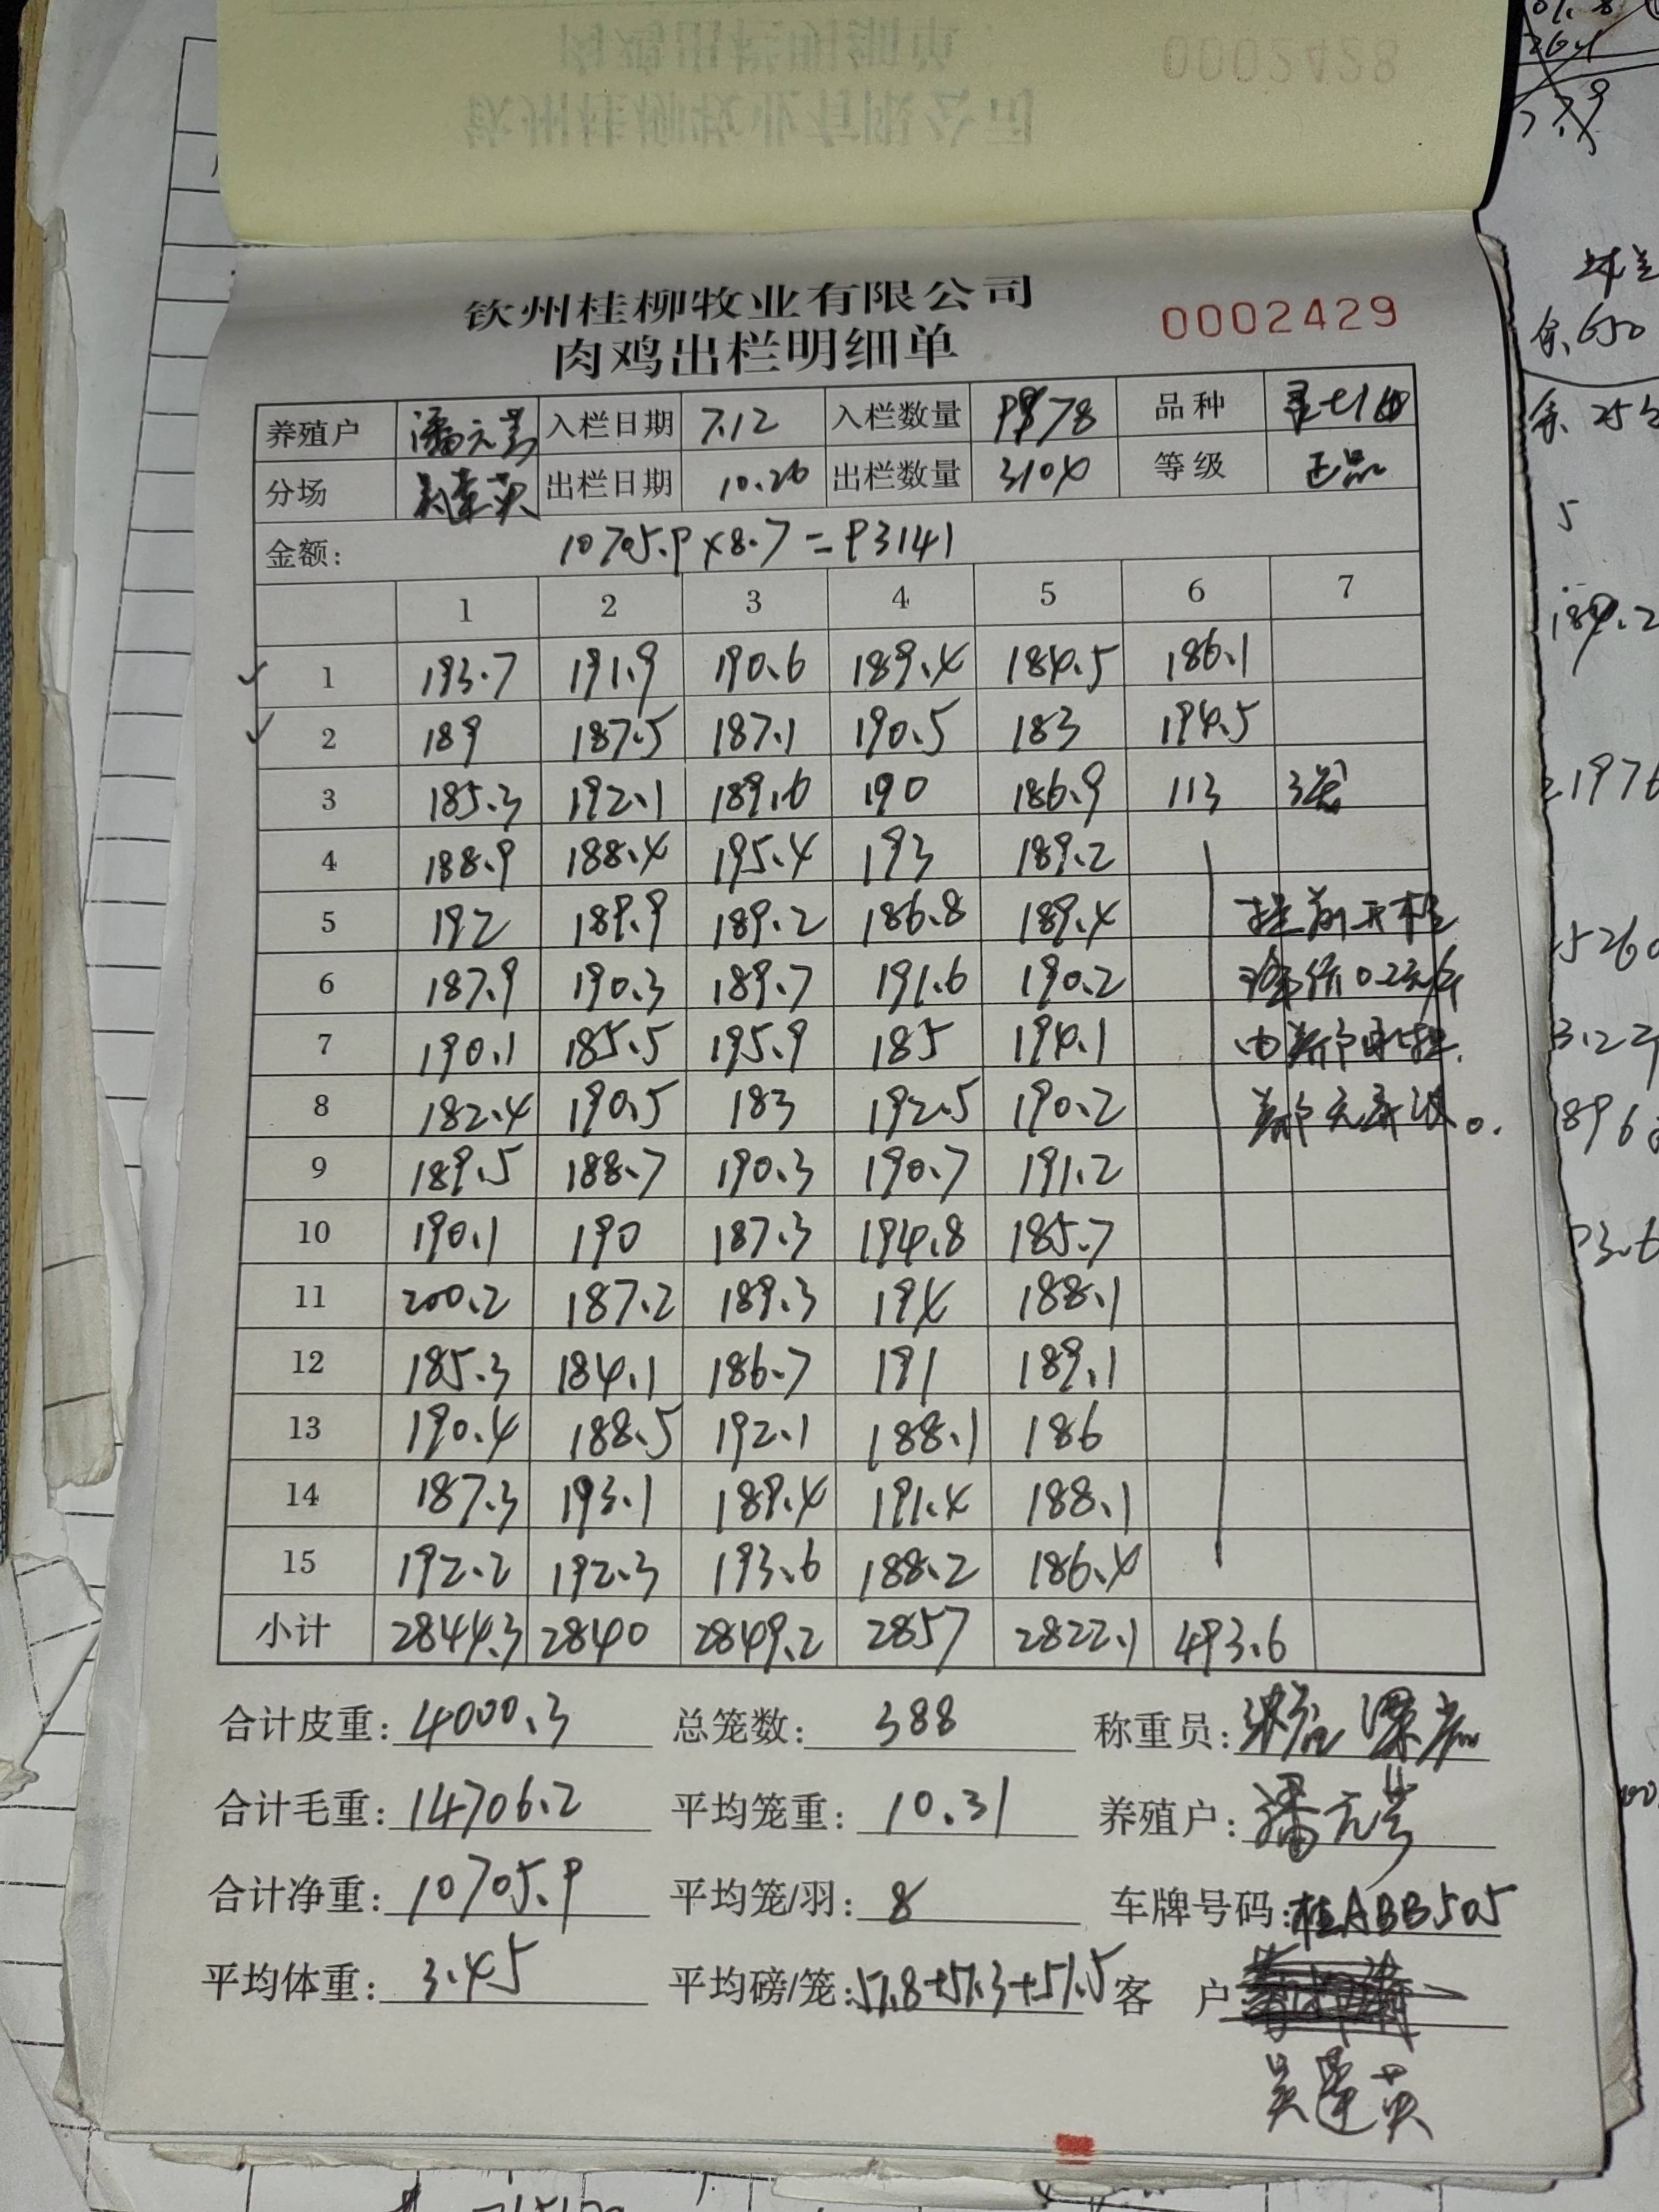 0002428
钦州桂柳牧业有限公司
肉鸡出栏明细单
0002429
养殖户 潘元 入栏日期 7.12 入栏数量 78 品种
分场 出栏日期 10.26 出栏数量 3104 等级 正品
金额: 10705.9×8.7=93141
1 2 3 4 5 6 7
1 193.7 191.9 190.6 189.4 184.5 186.1
2 189 187.5 187.1 190.5 183 194.5
3 185.3 192.1 189.6 190 186.9 113 3笼
4 188.9 188.4 195.4 193 189.2
5 192 189.9 189.2 186.8 189.4
6 187.9 190.3 189.7 191.6 190.2 降价0.2元/斤
7 190.1 185.5 195.9 185 194.1
8 182.4 190.5 183 192.5 190.2
9 189.5 188.7 190.3 190.7 191.2
10 190.1 190 187.3 194.8 185.7
11 200.2 187.2 189.3 194 188.1
12 185.3 184.1 186.7 191 189.1
13 190.4 188.5 192.1 188.1 186
14 187.3 193.1 189.4 191.4 188.1
15 192.2 192.3 193.6 188.2 186.4
小计 2844.3 2840 2849.2 2857 2822.1 493.6
合计皮重: 4000.3 总笼数: 388 称重员:
合计毛重: 14706.2 平均笼重: 10.31 养殖户: 潘元
合计净重: 10705.9 平均笼/羽: 8 车牌号码: 桂ABB505
平均体重: 3.45 平均磅/笼: 51.8+51.3+51.5 客 户
吴莲英
余650
余253
5
189.2
1976
5260
3.229
896